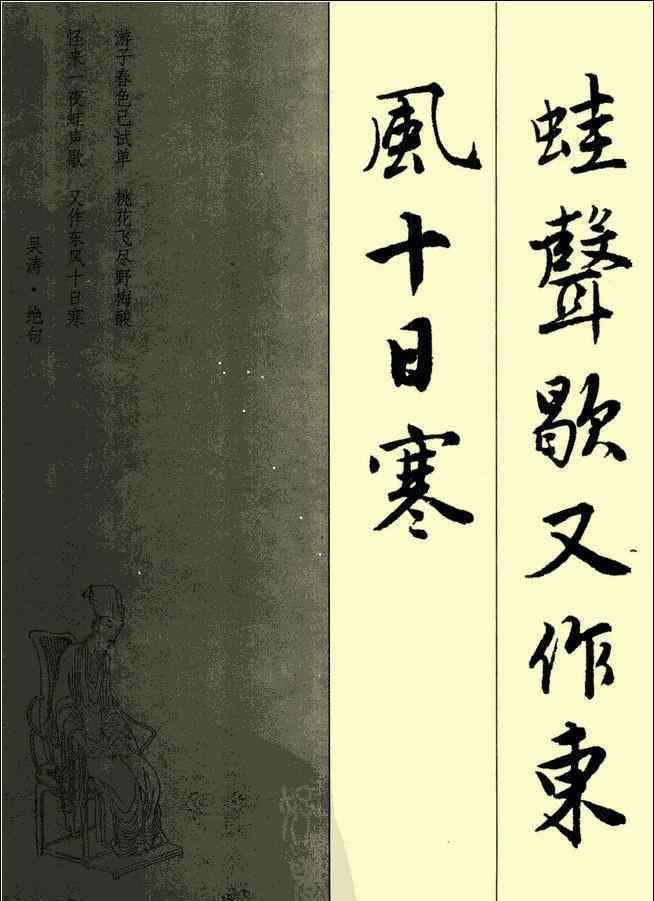 蛙聲歇又作東
風十日寒
游子春色已试单　桃花飞尽野梅酸
怪来一夜蛙声歇　又作东风十日寒
吴涛・绝句